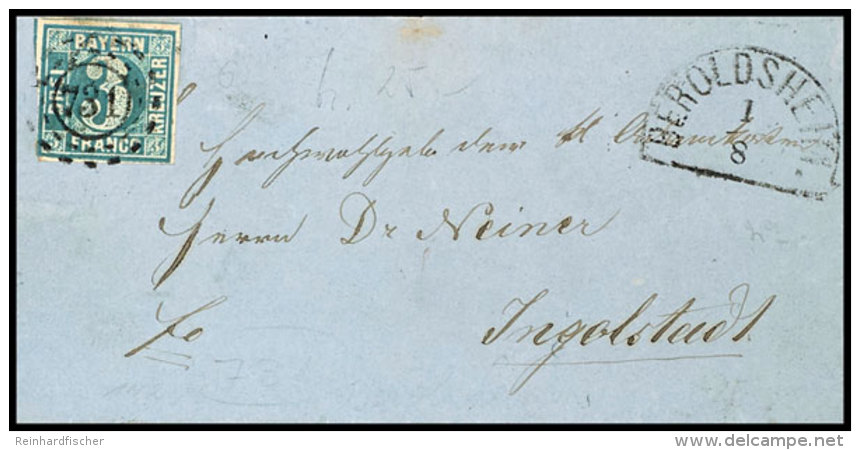 BAYERN
3
KREUZER
FRANCO
731
BEROLDSHEIM.
1
8
Hochwohlgeb dem
Herrn Dr Neiner
fo
Ingolstadt
Reinhardfischer
www.delcampe.net